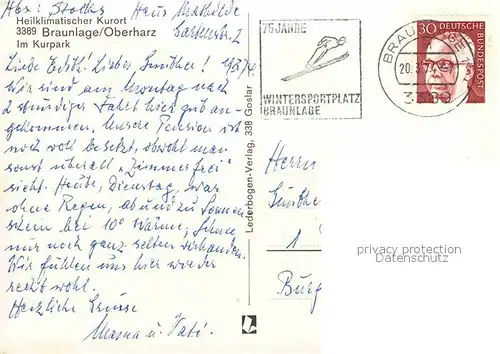 Abs: Stocks Haus Mathilde
Heilklimatischer Kurort
3389 Braunlage/Oberharz
Im Kurpark
Wir sind am Montag nach
2 stündiger Fahrt hier gut an-
gekommen. Unsere Pension ist
noch voll besetzt, obwohl man
sonst überall "Zimmer frei"
sieht. Heute, Dienstag, war
ohne Regen, ab und zu Sonnen
schein bei 10° Wärme, Schnee
nur noch ganz selten vorhanden.
Wir fühlen uns hier wieder
recht wohl.
Herzliche Grüsse
Mama u. Vati.
Lederbogen-Verlag, 338 Goslar
75 JAHRE
WINTERSPORTPLATZ
BRAUNLAGE
BRAU
20.3.7
30
DEUTSCHE
BUNDESPOST
Herrn
1
Burg
privacy protection